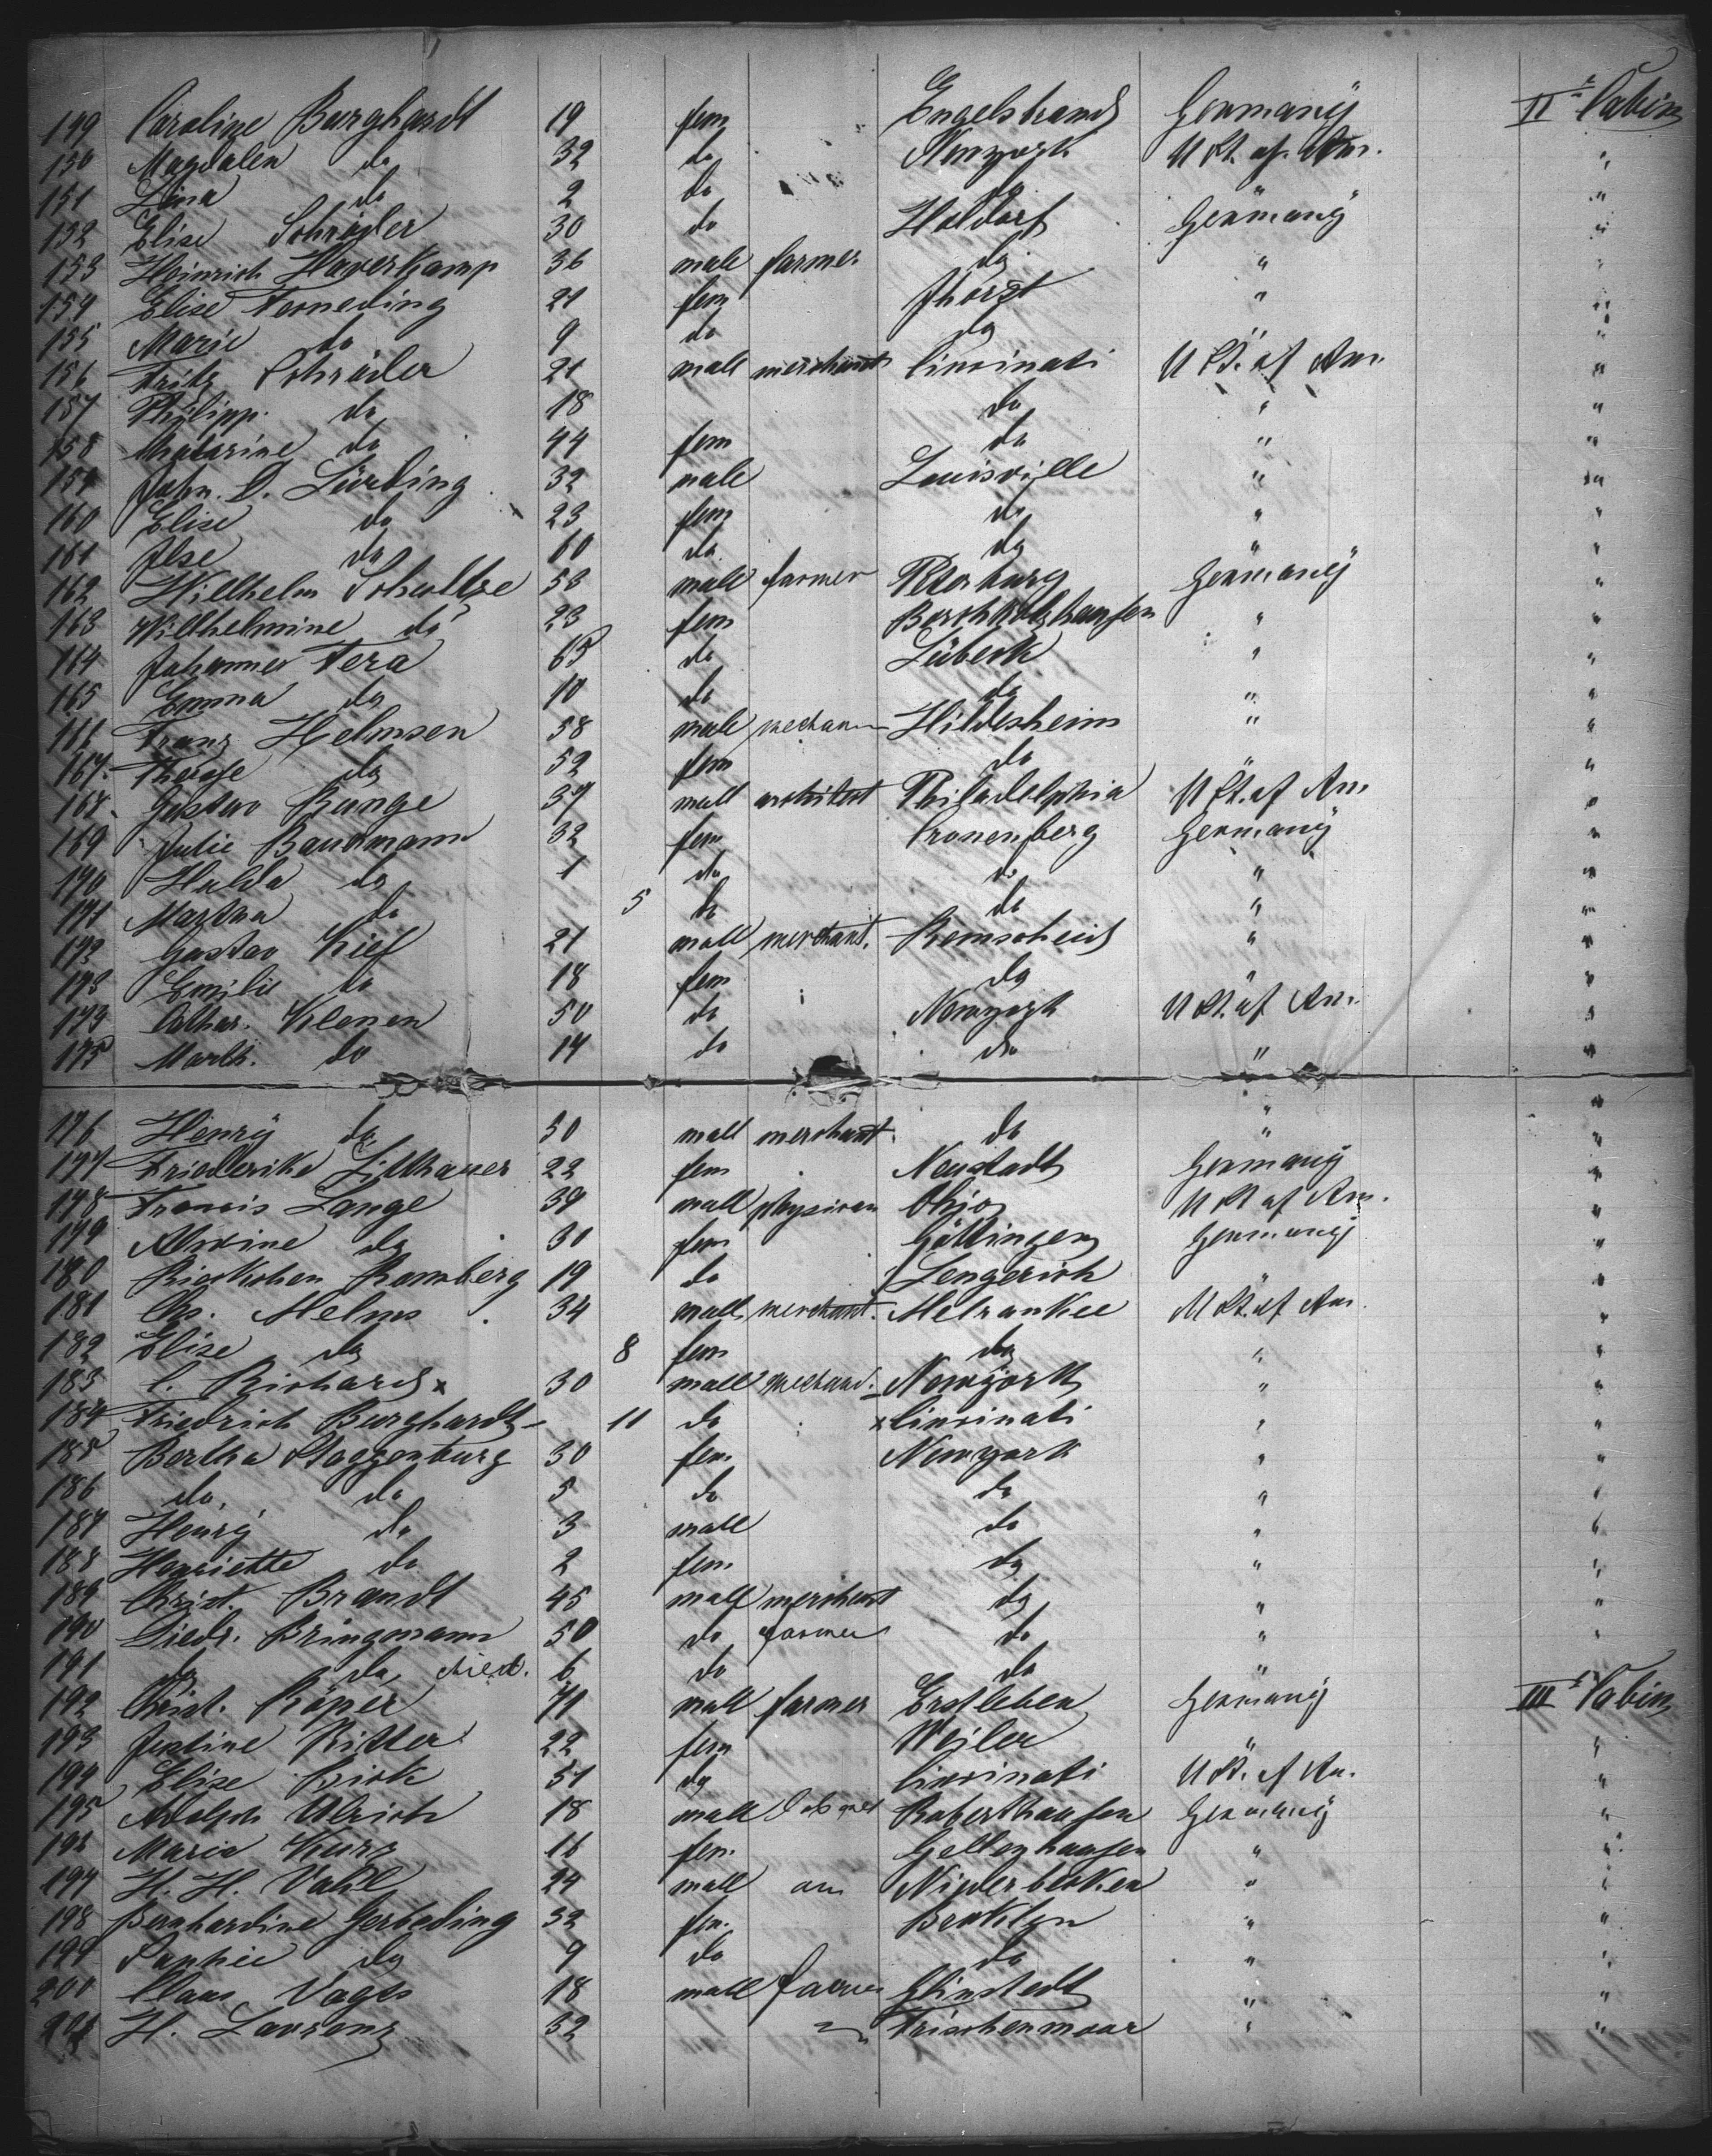 149 Caroline Burghardt 19 fem Engelsbrand Germany II Cabin
150 Magdalen do 32 do Newyork U St. of Am. "
151 Lina do 2 do do " "
152 Elise Schröder 30 do Holdorf Germany "
153 Heinrich Haverkamp 36 male farmer do " "
154 Elise Terneding 21 fem Ihorst " "
155 Marie do 9 do do " "
156 Fritz Schröder 21 male merchant Cincinati U St. of Am. "
157 Philipp do 18 do " "
158 Chatarine do 44 fem do " "
159 John. D. Lürding 32 male Louisville " "
160 Elise do 23 fem do " "
161 Ilse do 60 do do " "
162 Wilhelm Schultze 58 male farmer Petersburg Germany "
163 Wilhelmine do 23 fem Borchholzhausen " "
164 Johannes Tera 63 do Lübeck " "
165 Emma do 10 do do " "
166 Franz Helmsen 58 male mechanic Hildesheim " "
167 Therese do 52 fem do " "
168 Gustav Runge 37 male architect Philadelphia U St. of Am "
169 Julie Baukmann 32 fem Cronenberg Germany "
170 Hulda do 1 do do " "
171 Martha do 5 do do " "
172 Gustav Kief 21 male merchant. Remscheid " "
173 Emilie do 18 fem do "
173 Cathar. Klenen 50 do Newyork U St. of Am. "
175 Marth. do 14 do do " "
176 Henry do 50 male merchant do " "
177 Friederike Lilthauer 22 fem Neustadt Germany "
178 Francis Lange 39 male physician Ohio U St of Am. "
179 Alwine do 30 fem Göttingen Germany "
180 Rieckchen Ramberg 19 do Lengerich " "
181 Chs. Melms 34 male merchant. Melwankee U St. of Am. "
182 Elise do 8 fem do " "
183 C. Richards x 30 male mechanic. Newyork " "
184 Friedrich Burghardt 11 do x Cincinati " "
185 Bertha Staggenburg 30 fem Newyork " "
186 do, do 5 do do " "
187 Henry do 3 male do " "
188 Henriette do 2 fem do " "
189 Christ. Brandt 45 male merchant do " "
190 Diedr. Bringmann 50 do farmer do " "
191 do do, 6 do do "
192 Christ. Röper 71 male farmer Erxleben Germany III Cabin
193 Justine Ritter 22 fem Weiler " "
194 Elise Birk 51 do Cincinati U St. of Am. "
195 Adolph Ulrich 18 male Roberthausen Germany "
196 Maria Kurz 16 fem. Gellezhausen " "
197 H. H. Vahl 24 male Niederbecken " "
198 Bernhardine Gerbeding 32 fem. Broklyn " "
199 Sophie do 9 do do " "
200 Claus Vages 18 male farmer Glinstedt " "
201 H. Lavrenz 32 Frischenmoor " "